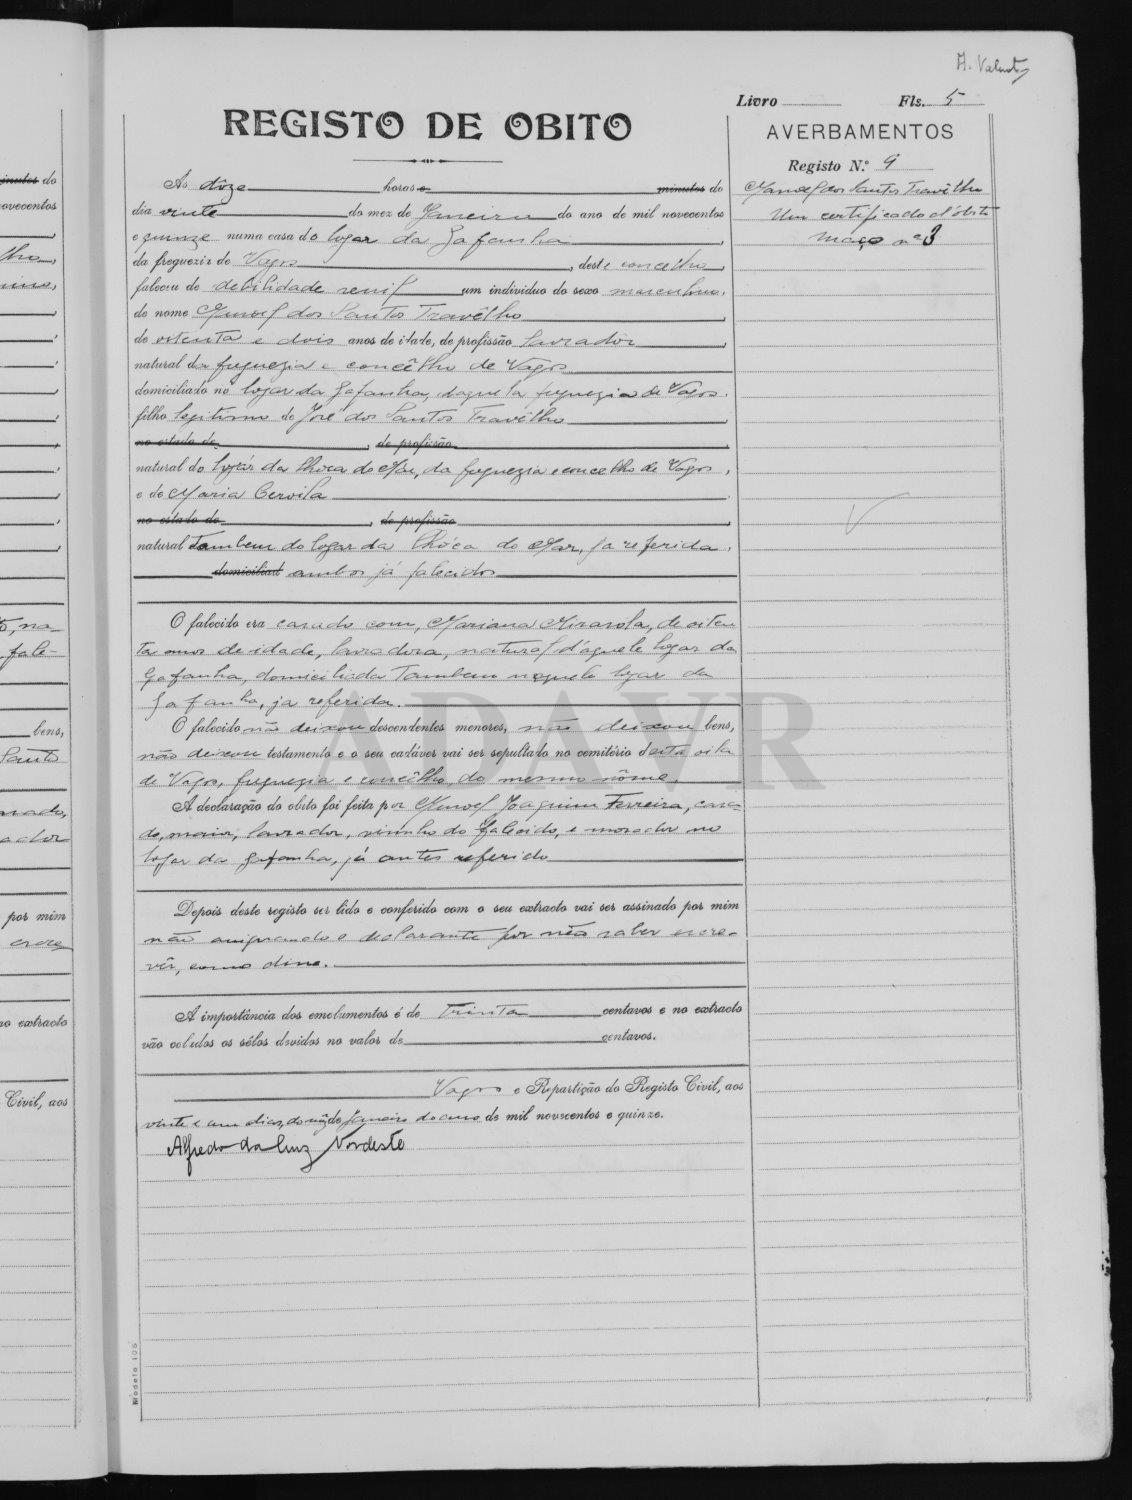 Livro Fls. 5
REGISTO DE OBITO
AVERBAMENTOS
Registo N.º 9
Manoel dos Santos Travêlho
Um certificado d'óbito
maço nº 3
Ás dôze horas e minutos do
dia vinte do mez de Janeiro do ano de mil novecentos
e quinze numa casa do logar da Gafanha,
da freguezia de Vagos, deste concelho,
faleceu de debilidade senil um individuo do sexo masculino,
de nome Manoel dos Santos Travêlho
de oitenta e dois anos de idade, de profissão lavrador,
natural da freguezia e concêlho de Vagos
domiciliado no logar da Gafanha, daquela freguezia de Vagos,
filho legitimo de José dos Santos Travêlho
no estado de, de profissão
natural do logár da do Mar, da freguezia e concelho de Vagos,
e de Maria
no estado de, de profissão
natural tambem do logar da do Mar, ja referida,
domiciliad ambos já falecidos
O falecido era casado com, Mariana, de oiten-
ta anos de idade, lavradora, natural d'áquele logar da
Gafanha, domiciliada tambem naquele logar da
Gafanha, ja referida.
O falecido não deixou descendentes menores, não deixou bens,
não deixou testamento e o seu cadáver vai ser sepultado no cemitério desta vila
de Vagos, freguezia e concêlho do mesmo nôme.
A declaração do obito foi feita por Manoel Joaquim Ferreira, casa-
do, maior, lavrador, visinho do falecido, e morador no
logar da Gafanha, já antes referido
Depois deste registo ser lido e conferido com o seu extracto vai ser assinado por mim
não assignando o declarante por não saber escre-
vêr, como disse.
A importância dos emolumentos é de Trinta centavos e no extracto
vão colados os sêlos devidos no valor de centavos.
Vagos e Repartição do Registo Civil, aos
vinte e um dias, do mêz de Janeiro do ano de mil novecentos e quinze.
Alfredo da Cruz Nordeste
Modelo 106
ADAVR